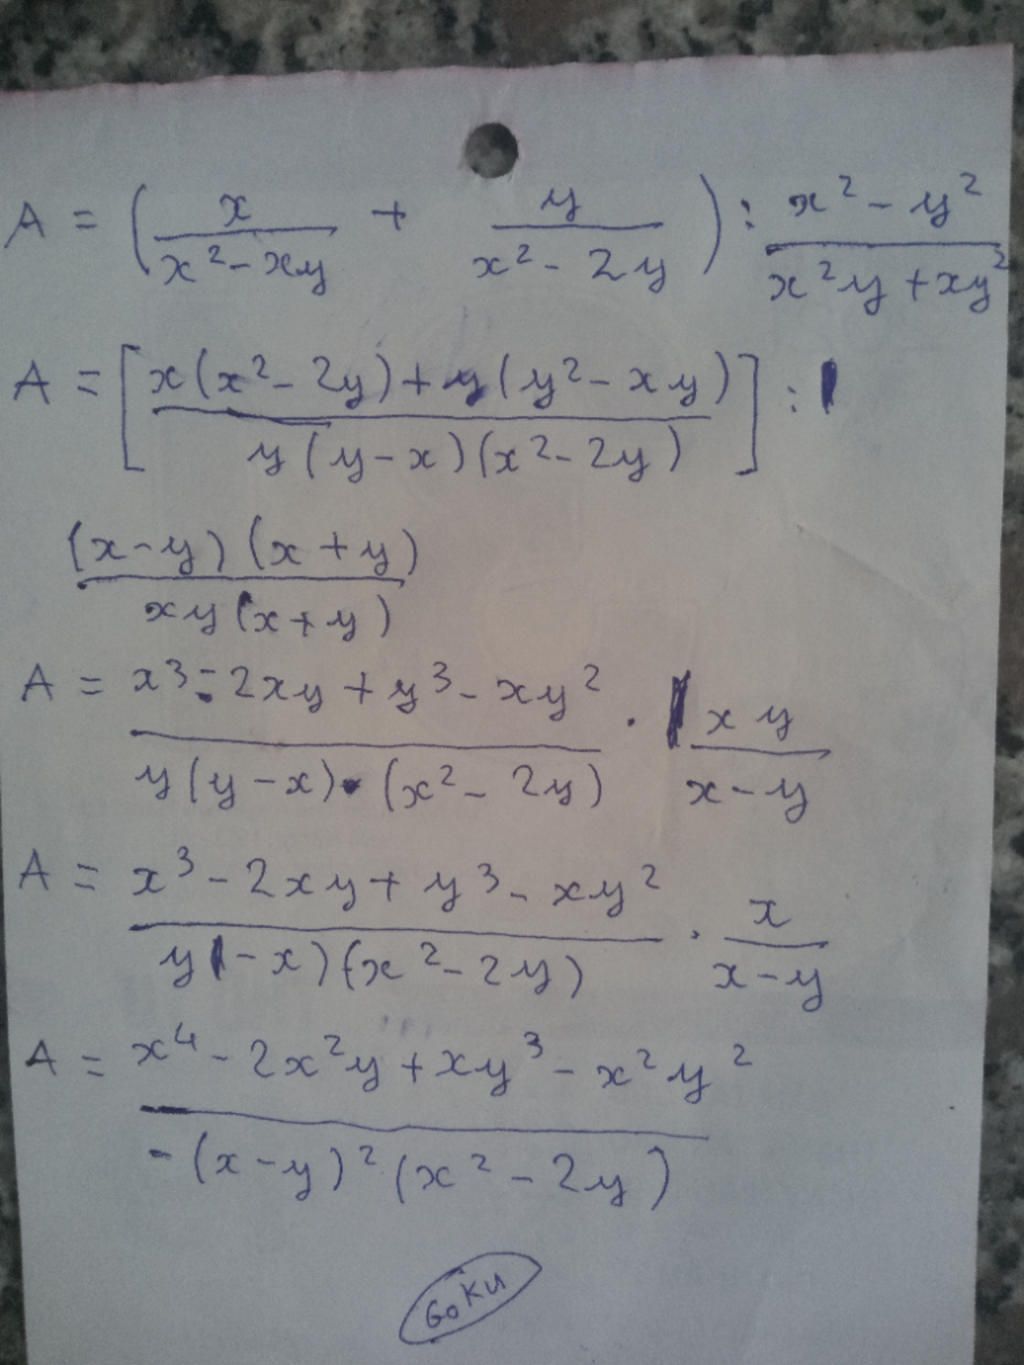 A = (x/(x² - xy) + y/(x² - 2y)) : (x² - y²)/(x²y + xy²)
A = [(x(x² - 2y) + y(y² - xy))/(y(y - x)(x² - 2y))] :
((x - y)(x + y))/(xy(x + y))
A = (x³ - 2xy + y³ - xy²)/(y(y - x) · (x² - 2y)) · xy/(x - y)
A = (x³ - 2xy + y³ - xy²)/(y - x)(x² - 2y) · x/(x - y)
A = (x⁴ - 2x²y + xy³ - x²y²)/(-(x - y)²(x² - 2y))
GOKU